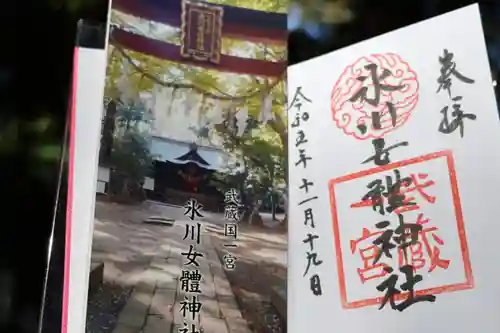 武蔵国一宮
氷川女體神社
奉拝
氷川女體神社
武蔵
一宮
令和五年十一月十九日